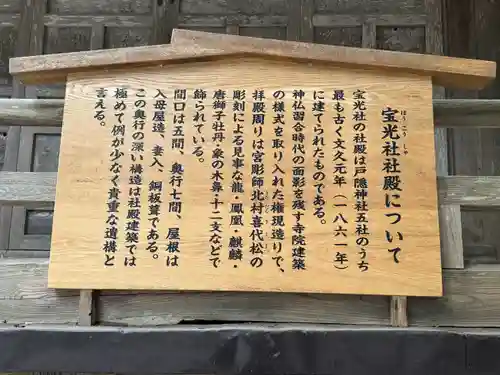 宝光社社殿について
ほうこうしゃ
宝光社の社殿は戸隠神社五社のうち
最も古く文久元年(一八六一年)
に建てられたものである。
神仏習合時代の面影を残す寺院建築
の様式を取り入れた権現造りで、
拝殿周りは宮彫師北村喜代松の
彫刻による見事な龍・鳳凰・麒麟・
唐獅子牡丹・象の木鼻・十二支などで
飾られている。
間口は五間、奥行七間、屋根は
入母屋造、妻入、銅板葺である。
この奥行の深い構造は社殿建築では
極めて例が少なく貴重な遺構と
言える。